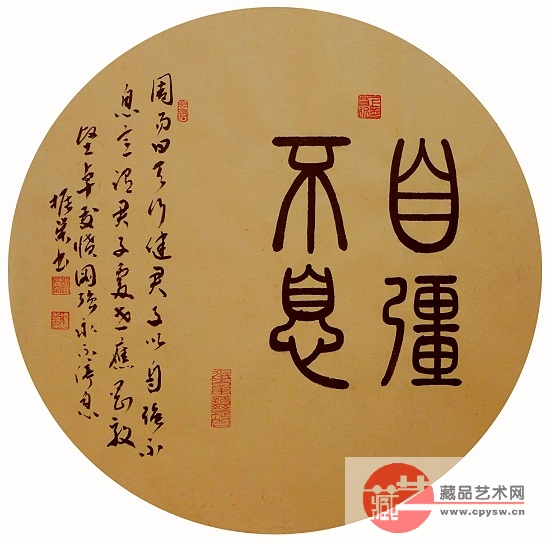 自彊
不息
周易曰天行健君子以自强不
息意谓君子处世应刚毅
坚卓发愤图强永不停息
振荣书
藏品艺术网
www.cpysw.cn